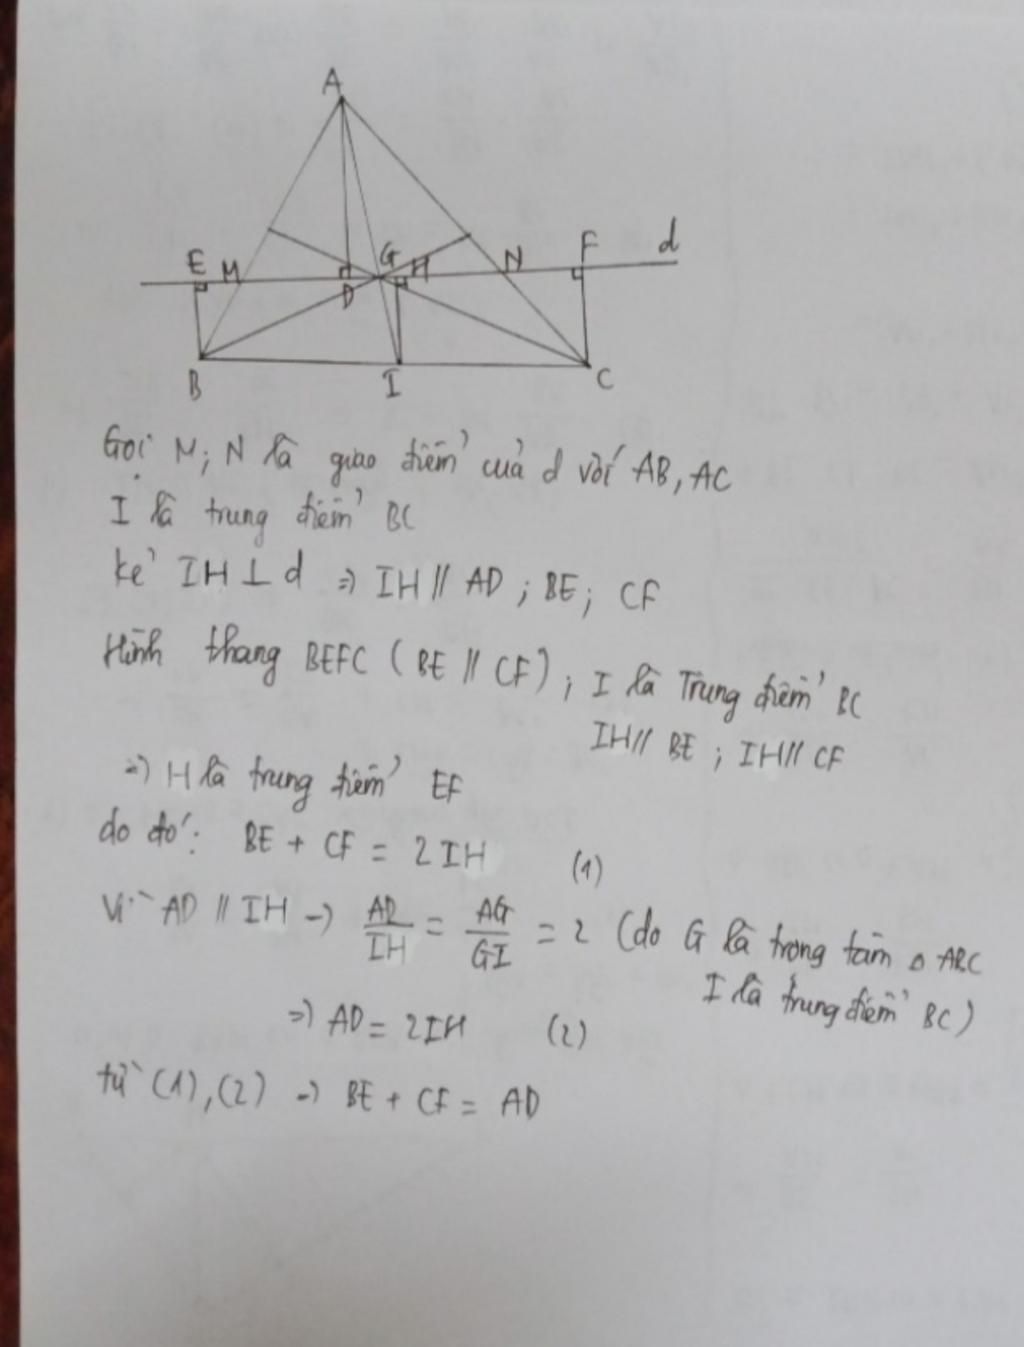 A
E M G H N F d
D
B I C
Gọi M; N là giao điểm của d với AB, AC
I là trung điểm BC
kẻ IH ⊥ d ⇒ IH // AD ; BE ; CF
Hình thang BEFC ( BE // CF ) ; I là Trung điểm BC
IH // BE ; IH // CF
⇒ H là trung điểm EF
do đó: BE + CF = 2IH (1)
Vì AD // IH → AD/IH = AG/GI = 2 (do G là trọng tâm △ ABC
I là trung điểm BC)
⇒ AD = 2IH (2)
từ (1), (2) → BE + CF = AD